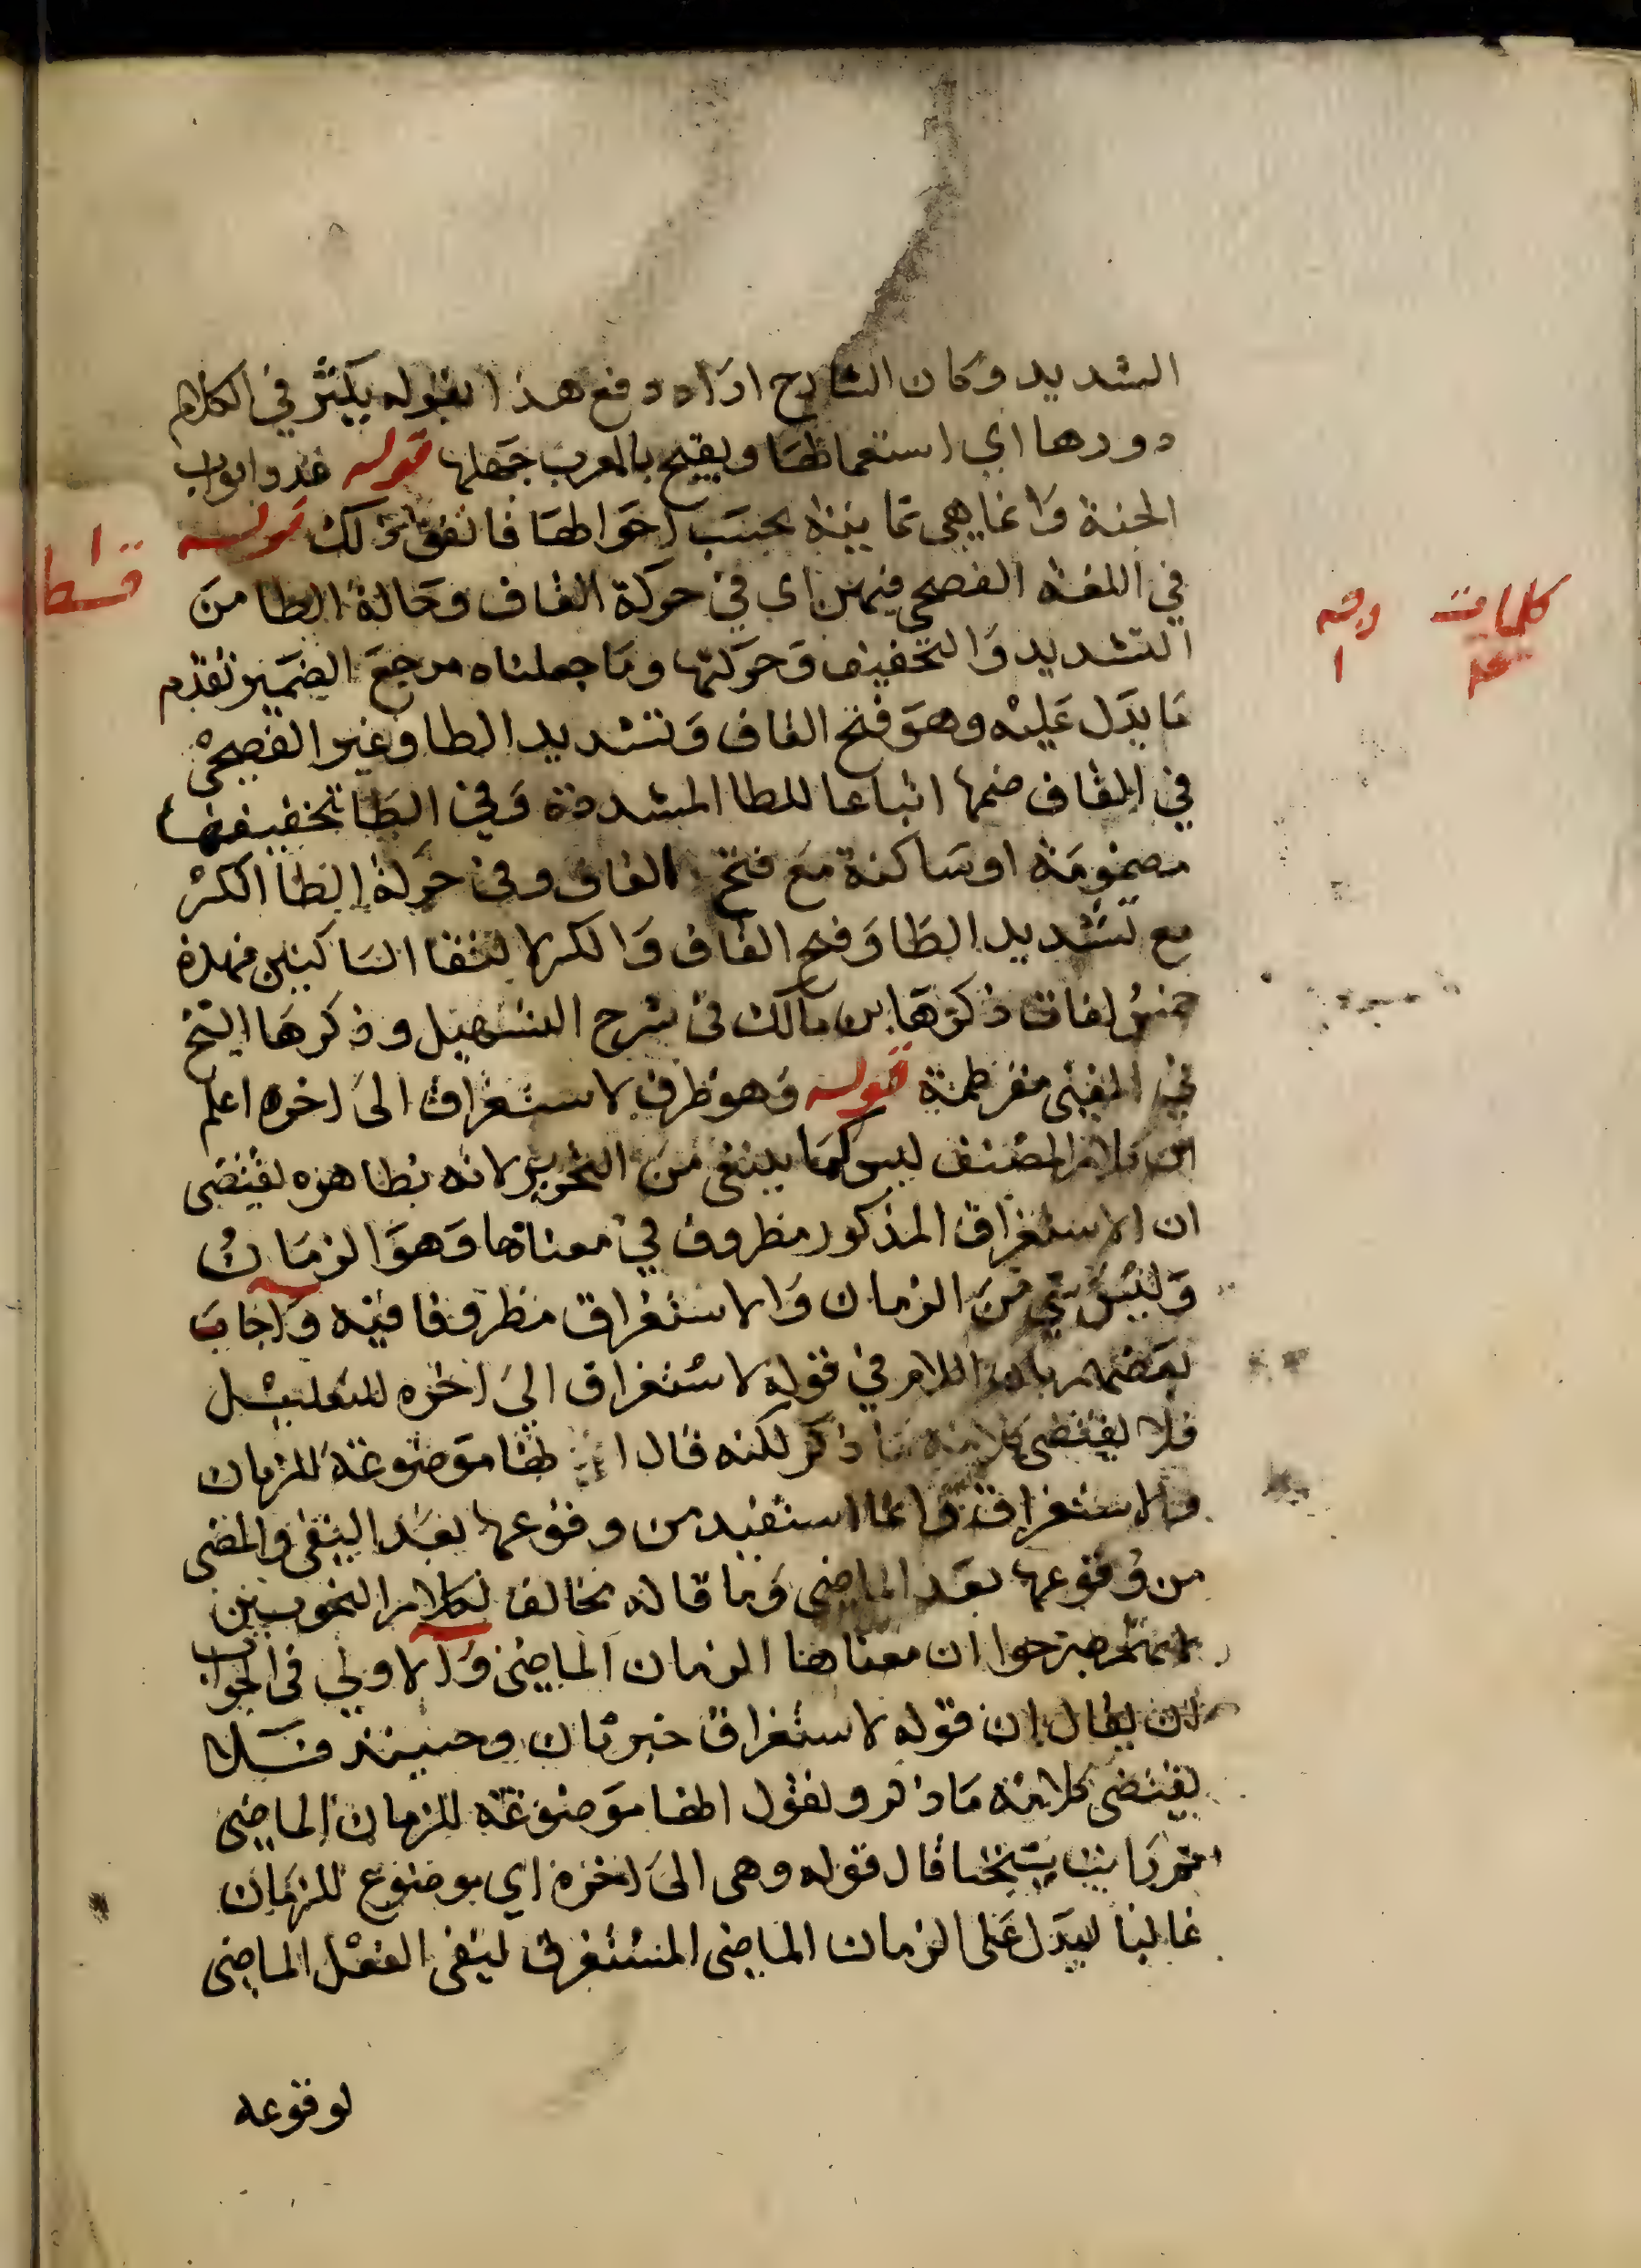 الشديد وكان الشارح اراد دفع هذا بقوله يكثر في الكلام
دورها اي استعمالها ويقبح بالمعرب جهلها قوله عدد ابواب
الجنة وانما هي ثمانية بحسب احوالها فاتفق ذلك قوله
في اللغة الفصحى فيهن اي في حركة القاف وحالة الطا من
التشديد والتخفيف وحركتها وما جعلناه مرجع الضمير تقدم
ما يدل عليه وهو فتح القاف وتشديد الطا وغير الفصحى
في القاف ضمها اتباعا للطا المشددة وفي الطا تخفيفها
مضمومة او ساكنة مع فتح القاف وفي حركة الطا الكسر
مع تشديد الطا وفتح القاف والكسر لالتقا الساكنين فهذه
خمس لغات ذكرها ابن مالك في شرح التسهيل وذكرها الشيخ
في المغني مفرطمة قوله وهو ظرف لاستغراق الى اخره اعلم
ان كلام المصنف ليس كما ينبغي من التحرير لانه بظاهره يقتضي
ان الاستغراق المذكور مظروف في معناها وهو الزمان
وليس شي من الزمان والاستغراق مظروفا فيه واجاب
بعضهم بان اللام في قوله لاستغراق الى اخره للتعليل
فلا يقتضي كلامه ما ذكر لكنه قال انها موضوعة للزمان
والاستغراق وانما استفيد من وقوعها بعد النفي والمضي
من وقوعها بعد الماضي وما قاله مخالف لكلام النحويين
لانهم صرحوا ان معناها الزمان الماضي والاولى في الجواب
ان يقال ان قوله لاستغراق خبر ثان وحينئذ فلا
يقتضي كلامه ما ذكر ونقول انها موضوعة للزمان الماضي
ثم رايت شيخنا قال قوله وهي الى اخره اي موضوع للزمان
غالبا ليدل على الزمان الماضي المستغرق لنفي الفعل الماضي
لوقوعه
كلمات